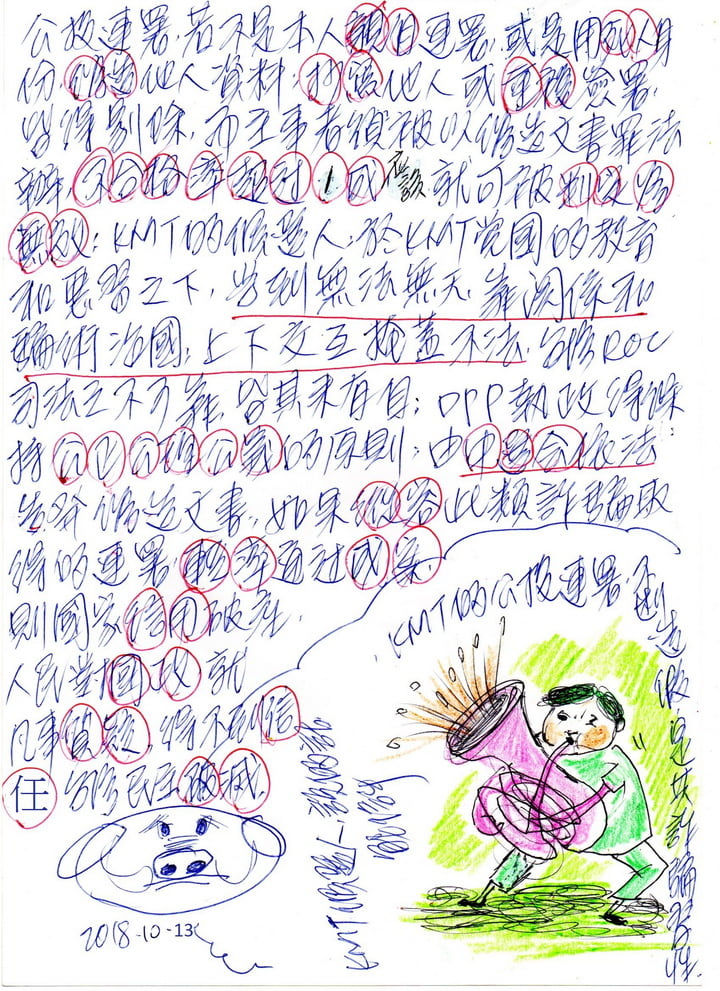 公投連署,若不是本人親自連署,或是用死人身
份,偽造他人資料,抄寫他人或重複簽署,
皆得剔除,而主事者須被以偽造文書罪法
辦,不合格率超过1成 應該 就可被判定為
無效;KMT的候選人,於KMT党國的教育
和惡習之下,皆到無法無天,靠関係和
騙術治國,上下交互掩蓋不法,台灣ROC
司法之不可靠,皆其來有自;DPP執政得保
持公正公理公義的原則,由中選会依法
告發偽造文書,如果縱容此類詐騙取
得的連署,輕率通过成案,
則國家信用破產,
人民對國政就
凡事質疑,得不到信
任 台灣民主破滅.
2018-10-13
KMT的公投連署,
造假是其詐騙習性.
KMT